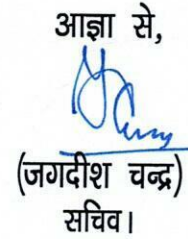 आज्ञा से,
(जगदीश चन्द्र)
सचिव।